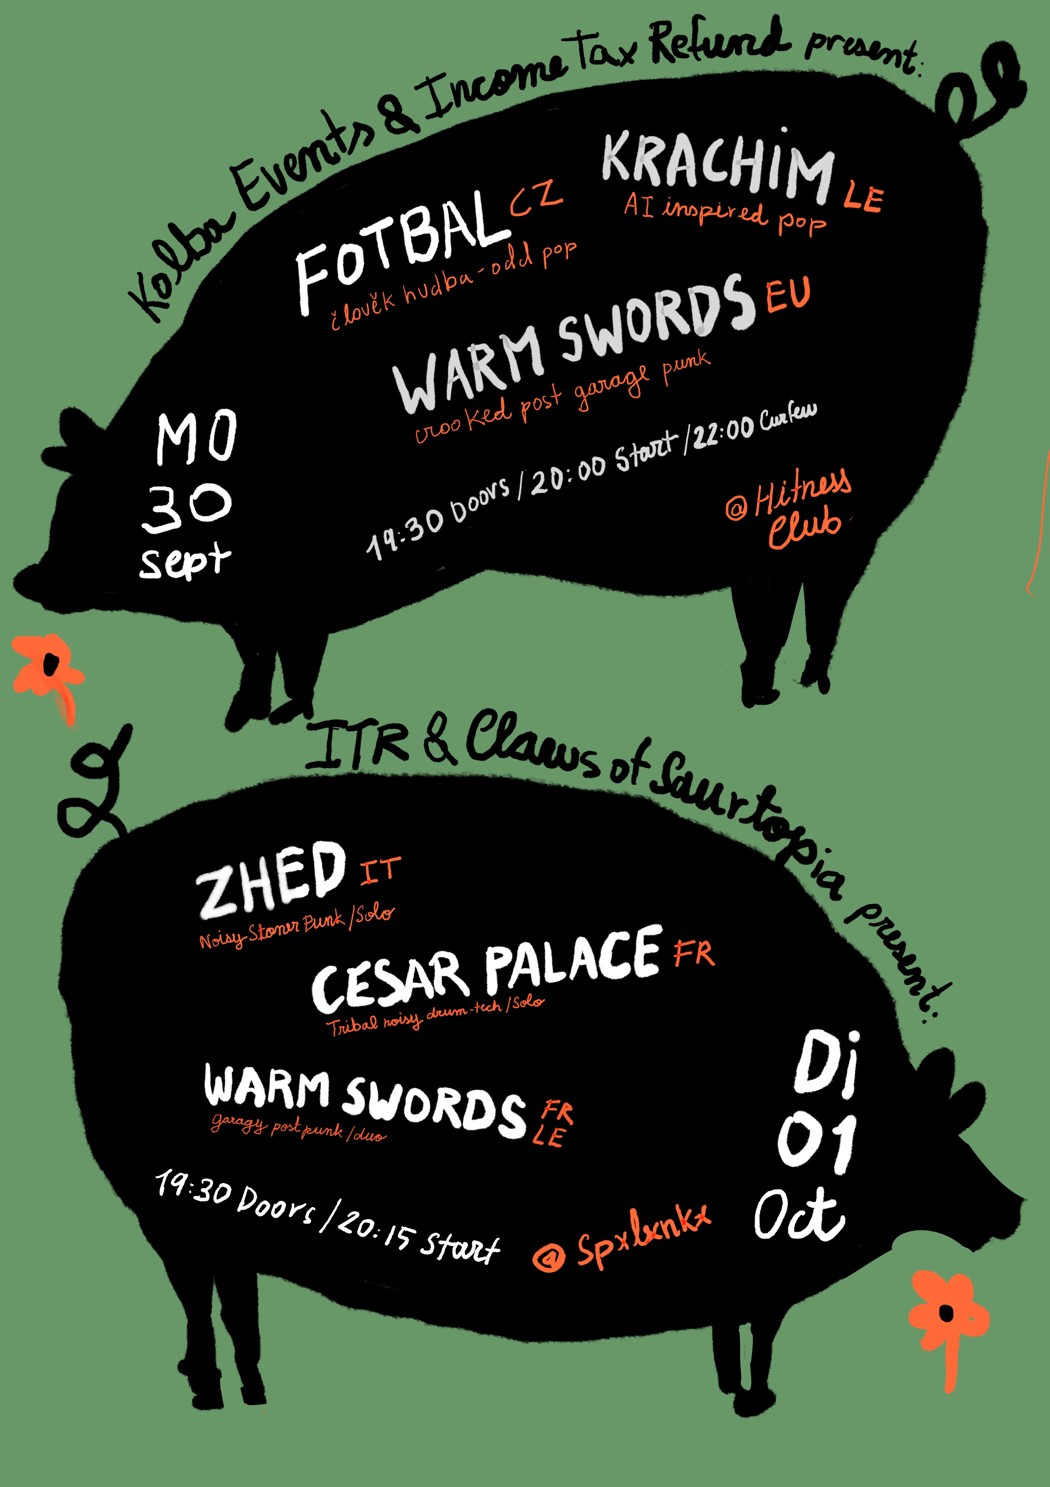 Kolba Events & Income Tax Refund present:
KRACHiM LE
AI inspired pop
FOTBAL CZ
člověk hudba - odd pop
WARM SWORDS EU
crooked post garage punk
MO
30
sept
19:30 Doors / 20:00 Start / 22:00 Curfew
@ Hitness
Club
ITR & Claws of Saurtopia present:
ZHED IT
Noisy Stoner Punk / Solo
CESAR PALACE FR
Tribal noisy drum-tech / Solo
WARM SWORDS FR
LE
garagy post punk / duo
Di
01
Oct
19:30 Doors / 20:15 Start
@ Spxlxnkx